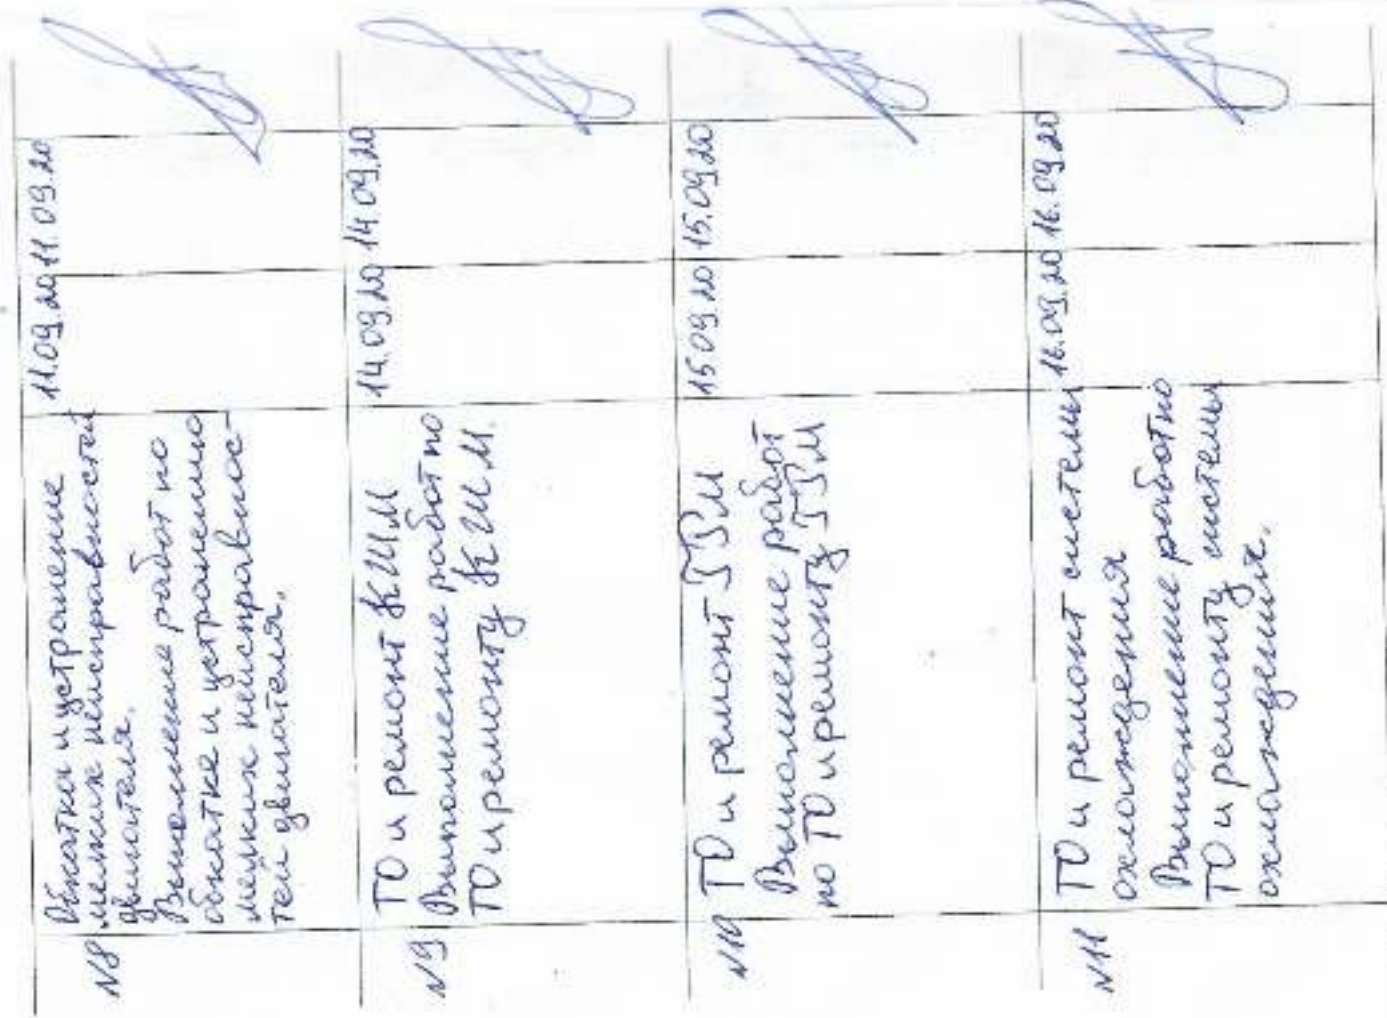 №8
Обкатка и устронение
мелких неисправностей
двигателя.
Выполнение работ по
обкатке и устронению
мелких неисправнос-
тей двигателя.
11.09.20
11.09.20
№9
ТО и ремонт КШМ
Выполнение работ по
ТО и ремонту КШМ.
14.09.20
14.09.20
№10
ТО и ремонт ГРМ
Выполнение работ
по ТО и ремонту ГРМ
15.09.20
15.09.20
№11
ТО и ремонт системы
охлаждения
Выполнение работ по
ТО и ремонту системы
охлаждения.
16.09.20
16.09.20